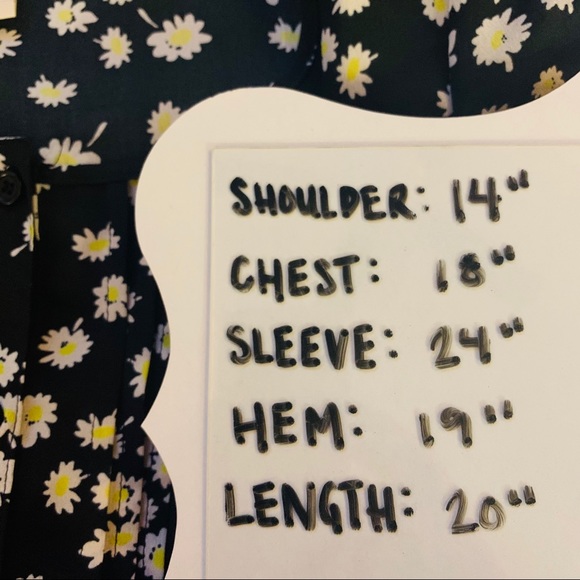 SHOULDER: 14"
CHEST: 18"
SLEEVE: 24"
HEM: 19"
LENGTH: 20"